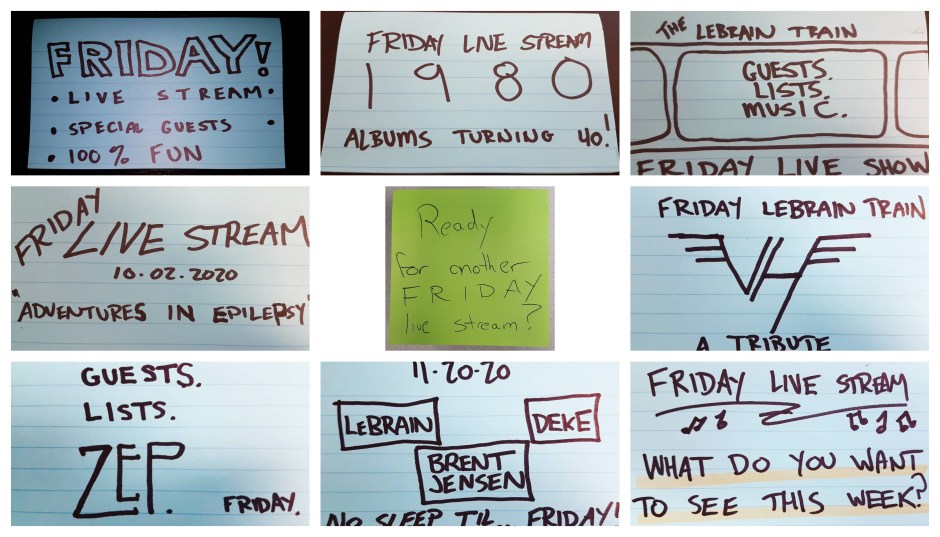 FRIDAY!
• LIVE STREAM •
• SPECIAL GUESTS •
• 100% FUN
FRIDAY LIVE STREAM
1980
ALBUMS TURNING 40!
THE LEBRAIN TRAIN
GUESTS.
LISTS.
MUSIC.
FRIDAY LIVE SHOW
FRIDAY
LIVE STREAM
10.02.2020
"ADVENTURES IN EPILEPSY"
Ready
for another
FRIDAY
live stream?
FRIDAY LEBRAIN TRAIN
VH
A TRIBUTE
GUESTS.
LISTS.
ZEP.
FRIDAY.
11-20-20
LEBRAIN
DEKE
BRENT
JENSEN
NO SLEEP TIL... FRIDAY!
FRIDAY LIVE STREAM
WHAT DO YOU WANT
TO SEE THIS WEEK?